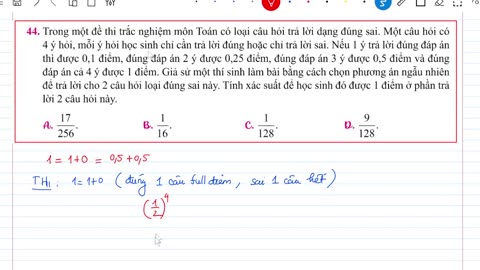 44. Trong một đề thi trắc nghiệm môn Toán có loại câu hỏi trả lời dạng đúng sai. Một câu hỏi có
4 ý hỏi, mỗi ý hỏi học sinh chỉ cần trả lời đúng hoặc chỉ trả lời sai. Nếu 1 ý trả lời đúng đáp án
thì được 0,1 điểm, đúng đáp án 2 ý được 0,25 điểm, đúng đáp án 3 ý được 0,5 điểm và đúng
đáp án cả 4 ý được 1 điểm. Giả sử một thí sinh làm bài bằng cách chọn phương án ngẫu nhiên
để trả lời cho 2 câu hỏi loại đúng sai này. Tính xác suất để học sinh đó được 1 điểm ở phần trả
lời 2 câu hỏi này.
A. 17/256. B. 1/16. C. 1/128. D. 9/128.
1 = 1+0 = 0,5+0,5
TH1: 1=1+0 (đúng 1 câu full điểm, sai 1 câu hết)
(1/2)^4